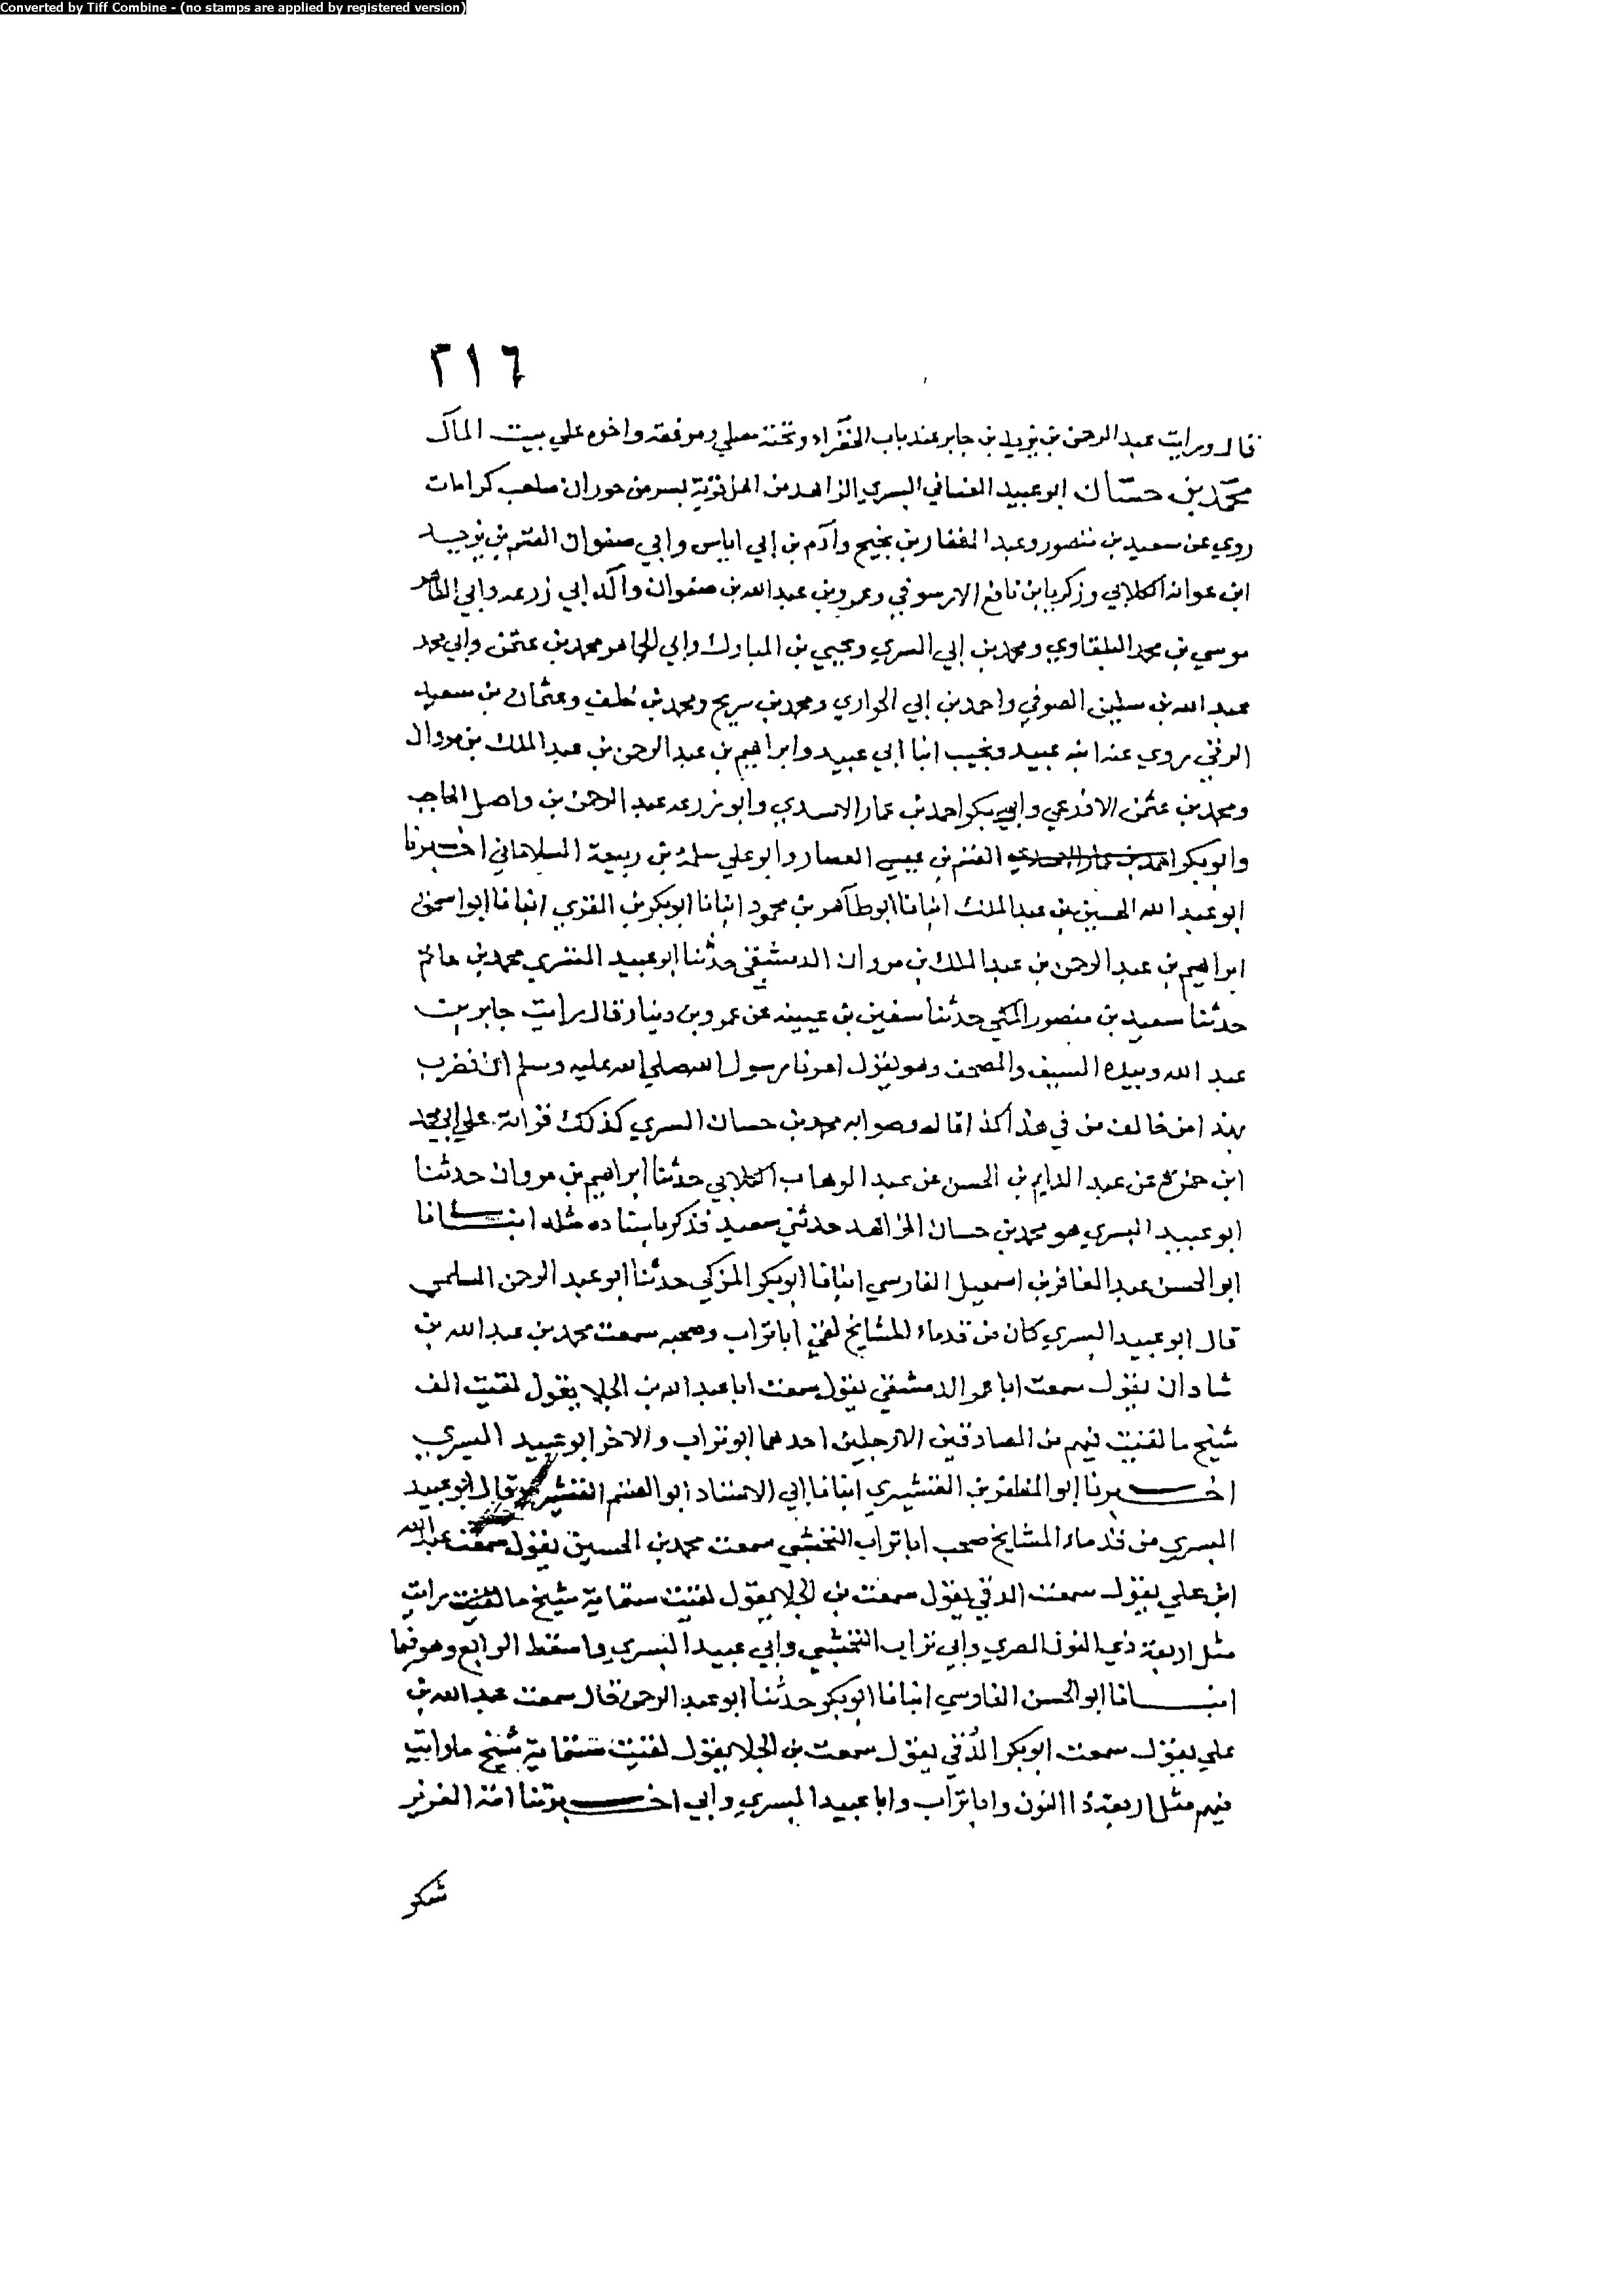 Converted by Tiff Combine - (no stamps are applied by registered version)
٢١٦
قال ورايت عبد الرحمن بن يزيد بن جابر عند باب وتحته مصلي ومرفقه واخوه علي بيت المال
محمد بن حسان ابو عبيد الغساني البسري الزاهد من اهل قرية بسر من حوران صاحب كرامات
روي عن سعيد بن منصور وعبد الغفار بن نجيح وآدم بن ابي اياس وابي صفوان القسم بن يزيد
ابن عوانه الكلابي وزكريا بن نافع الارسوفي وعمرو بن عبد الله بن صفوان والد ابي زرعه وابي الطاهر
موسي بن محمد البلقاوي ومحمد بن ابي السري ويحيي بن المبارك وابي الجماهر محمد بن عثمن وابي محمد
عبد الله بن سليمن الصوفي واحمد بن ابي الحواري ومحمد بن سريج ومحمد بن خلف وعثمان بن سعيد
روي عنه ابنه عبيد ونجيب ابنا ابي عبيد وابراهيم بن عبد الرحمن بن عبد الملك بن مروان
ومحمد بن عثمن الاذرعي وابو بكر احمد بن عمار الاسدي وابو زرعه عبد الرحمن بن واصل الحاجب
وابو بكر احمد بن عمار الاسدي القسم بن عيسي العصار وابو علي سلمة بن ربيعة السلاماني اخبرنا
ابو عبد الله الحسين بن عبد الملك انبانا ابو طاهر بن محمود انبانا ابو بكر بن المقري انبانا ابو اسحق
ابراهيم بن عبد الرحمن بن عبد الملك بن مروان الدمشقي حدثنا ابو عبيد محمد بن حاتم
حدثنا سعيد بن منصور المكي حدثنا سفين بن عيينه عن عمرو بن دينار قال رايت جابر بن
عبد الله وبيده السيف والمصحف وهو يقول امرنا رسول الله صلي الله عليه وسلم ان نضرب
بهذا من خالف من في هذا كذا قاله وصوابه محمد بن حسان البسري كذلك قراته علي ابي محمد
ابن حمزة عن عبد الدايم بن الحسن عن عبد الوهاب الكلابي حدثنا ابراهيم بن مروان حدثنا
ابو عبيد البسري هو محمد بن حسان الزاهد حدثني سعيد فذكر باسناده مثله انبانا
ابو الحسن عبد الغافر بن اسمعيل الفارسي انبانا ابو بكر المزكي حدثنا ابو عبد الرحمن السلمي
قال ابو عبيد البسري كان من قدماء المشايخ لقي ابا تراب وصحبه سمعت محمد بن عبد الله بن
شاذان يقول سمعت ابا عمر الدمشقي يقول سمعت ابا عبد الله بن الجلا يقول لقيت الف
شيخ ما لقيت فيهم من الصادقين الا رجلين احدهما ابو تراب والاخر ابو عبيد البسري
اخبرنا ابو المظفر بن القشيري انبانا ابي الاستاذ ابو القسم القشيري قال ابو عبيد
البسري من قدماء المشايخ صحب ابا تراب النخشبي سمعت محمد بن الحسين يقول سمعت عبد الله
ابن علي يقول سمعت الدقي يقول سمعت بن الجلا يقول لقيت ستماية شيخ ما لقيت رايت
مثل اربعة ذي النون المصري وابي تراب النخشبي وابي عبيد البسري واسقط الرابع وهو فيما
انبانا ابو الحسن الفارسي انبانا ابو بكر حدثنا ابو عبد الرحمن قال سمعت عبد الله بن
علي يقول سمعت ابو بكر الدقي يقول سمعت بن الجلا يقول لقيت ستماية شيخ ما رايت
فيهم مثل اربعة ذا النون وابا تراب وابا عبيد البسري وابي اخبرتنا امة العزيز
شكر